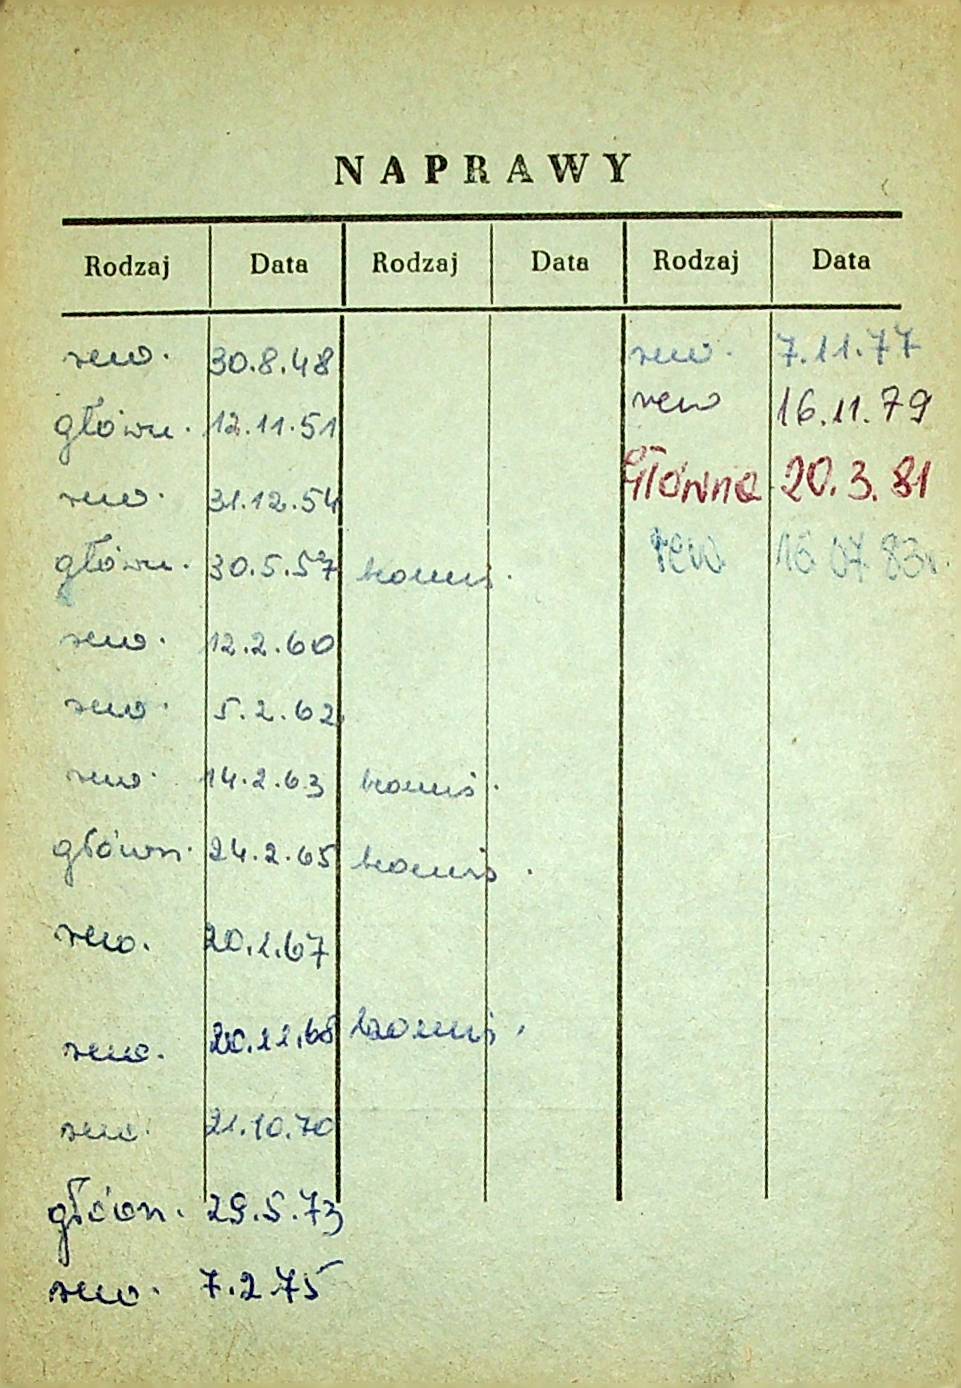 NAPRAWY
Rodzaj Data Rodzaj Data Rodzaj Data
rew. 30.8.48 rew. 7.11.77
główn. 12.11.51 rew 16.11.79
rew. 31.12.54 Główna 20.3.81
główn. 30.5.57 komis. rew 16 07 83r.
rew. 12.2.60
rew. 5.2.62
rew. 14.2.63 komis.
główn. 24.2.65 komis.
rew. 20.1.67
rew. 20.11.68 komis.
rew. 21.10.70
główn. 29.5.73
rew. 7.2.75